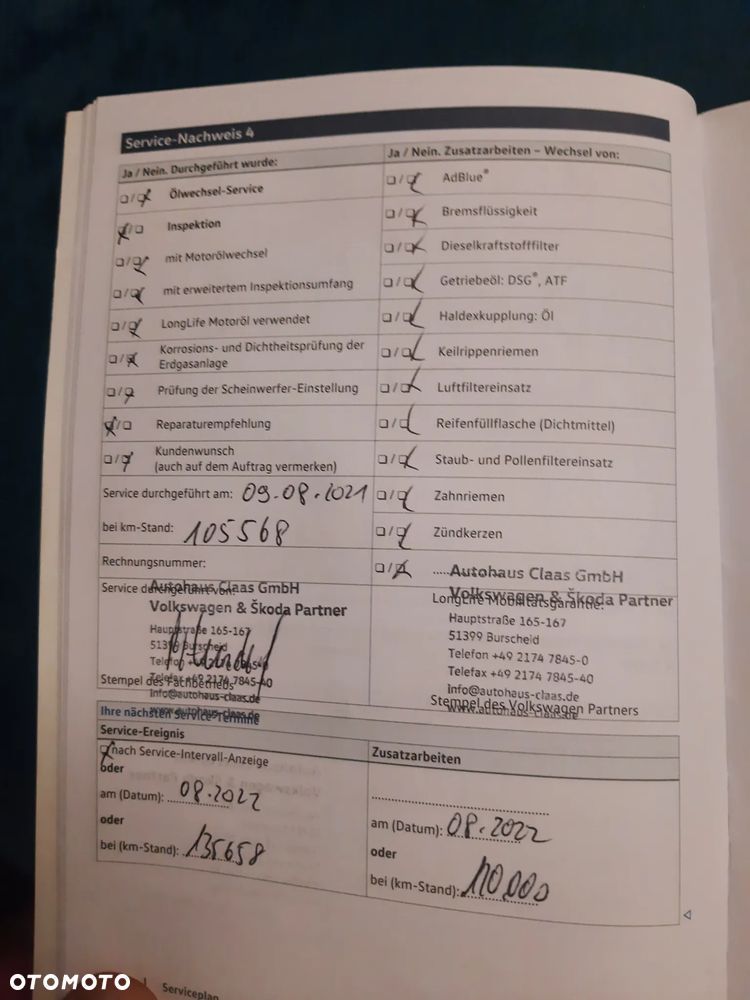 Service-Nachweis 4
Ja / Nein. Durchgeführt wurde:
Ölwechsel-Service
Inspektion
mit Motorölwechsel
mit erweitertem Inspektionsumfang
LongLife Motoröl verwendet
Korrosions- und Dichtheitsprüfung der
Erdgasanlage
Prüfung der Scheinwerfer-Einstellung
Reparaturempfehlung
Kundenwunsch
(auch auf dem Auftrag vermerken)
Service durchgeführt am: 09.08.2021
bei km-Stand: 105568
Rechnungsnummer:
Service durchgeführt von:
Autohaus Claas GmbH
Volkswagen & Škoda Partner
Hauptstraße 165-167
51399 Burscheid
Telefon +49 2174 7845-0
Telefax +49 2174 7845-40
Info@autohaus-claas.de
www.autohaus-claas.de
Stempel des Fachbetriebs
Ja / Nein. Zusatzarbeiten – Wechsel von:
AdBlue®
Bremsflüssigkeit
Dieselkraftstofffilter
Getriebeöl: DSG®, ATF
Haldexkupplung: Öl
Keilrippenriemen
Luftfiltereinsatz
Reifenfüllflasche (Dichtmittel)
Staub- und Pollenfiltereinsatz
Zahnriemen
Zündkerzen
Autohaus Claas GmbH
Volkswagen & Škoda Partner
LongLife Mobilitätsgarantie:
Hauptstraße 165-167
51399 Burscheid
Telefon +49 2174 7845-0
Telefax +49 2174 7845-40
Info@autohaus-claas.de
www.autohaus-claas.de
Stempel des Volkswagen Partners
Ihre nächsten Service-Termine
Service-Ereignis
nach Service-Intervall-Anzeige
oder
am (Datum): 08.2022
oder
bei (km-Stand): 135658
Zusatzarbeiten
am (Datum): 08.2022
oder
bei (km-Stand): 110.000
Serviceplan
OTOMOTO